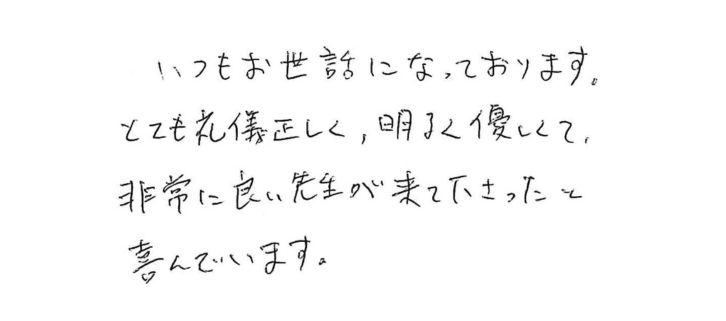 いつもお世話になっております。
とても礼儀正しく,明るく優しくて、
非常に良い先生が来て下さったと
喜んでいます。